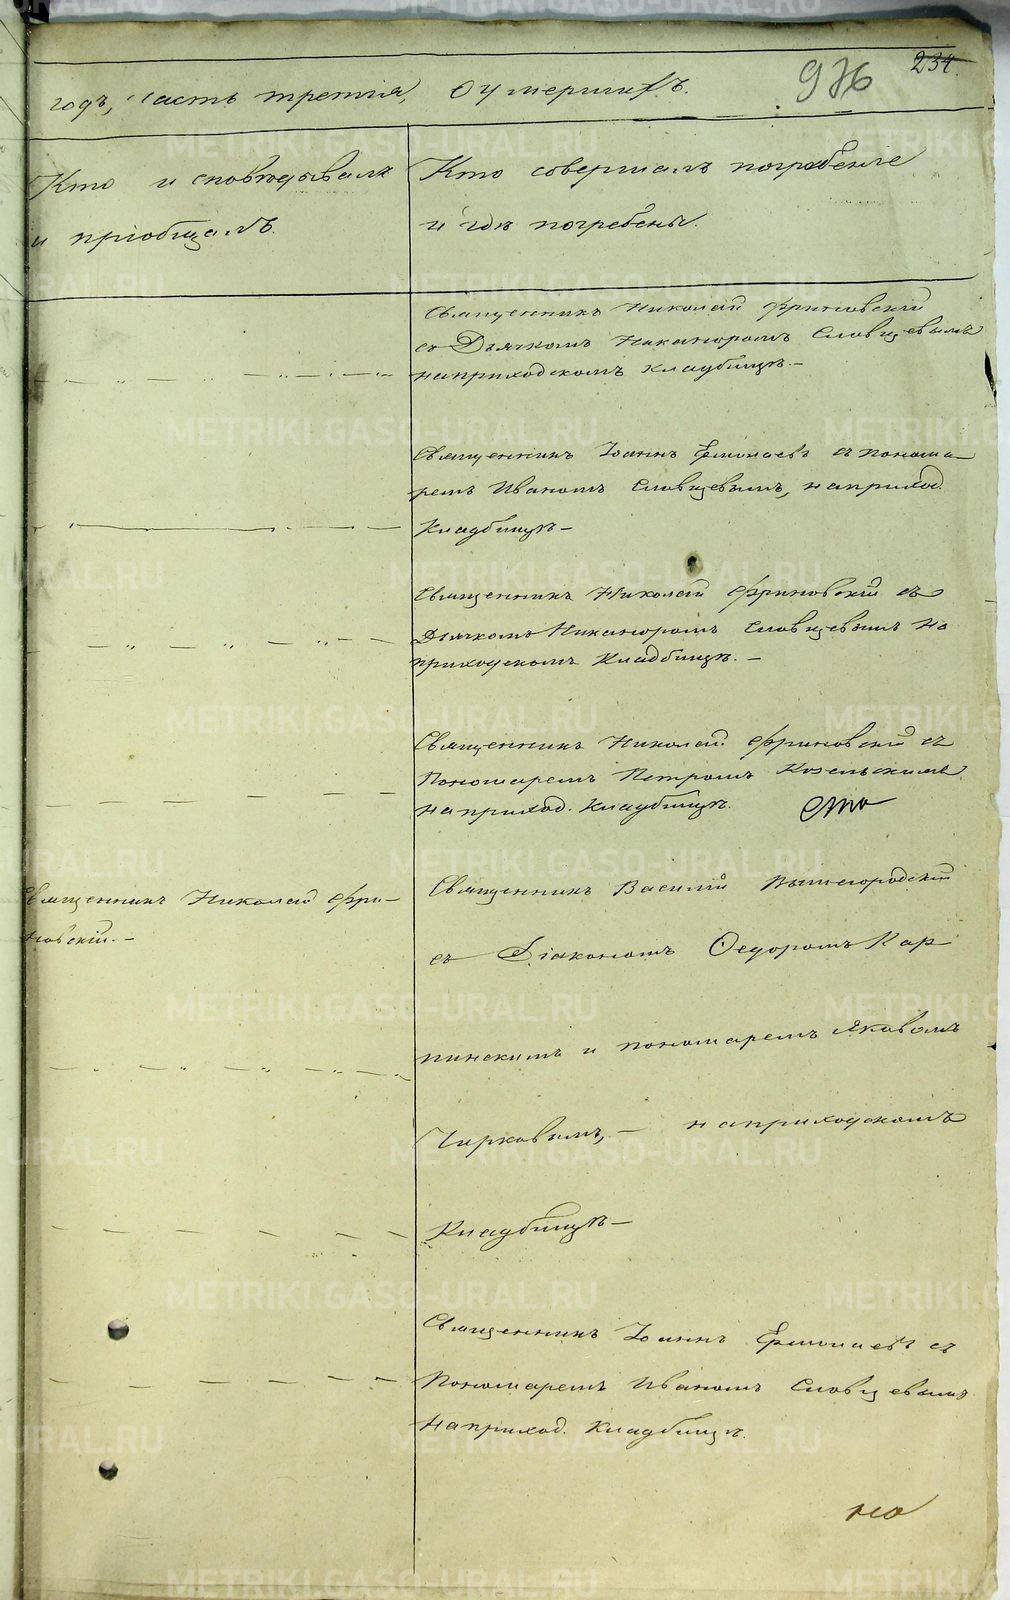 234.
976
годъ, часть третія, О умершихъ.
Кто исповѣдывалъ
и пріобщалъ.
Кто совершалъ погребеніе
и гдѣ погребены.
Священникъ Николай Фриновскій
съ Дьячкомъ Никаноромъ Словцевымъ
на приходскомъ кладбищѣ.—
Священникъ Іоаннъ Ермолаевъ съ понома-
ремъ Иваномъ Словцевымъ, на приход.
Кладбищѣ—
Священникъ Николай Фриновскій съ
Дьячкомъ Никаноромъ Словцевымъ на
приходскомъ Кладбищѣ.—
Священникъ Николай Фриновскій съ
Пономаремъ Петромъ Козельскимъ
на приход. Кладбищѣ.
сто
Священникъ Николай Фри-
новскій.—
Священникъ Василій Вышегородскій
съ Діакономъ Ѳедоромъ Кар
пинскимъ и пономаремъ Яковомъ
Чирковымъ,— на приходскомъ
Кладбищѣ—
Священникъ Іоаннъ Ермолаевъ съ
Пономаремъ Иваномъ Словцевымъ
на приход. Кладбищѣ.
на
METRIKI.GASO-URAL.RU